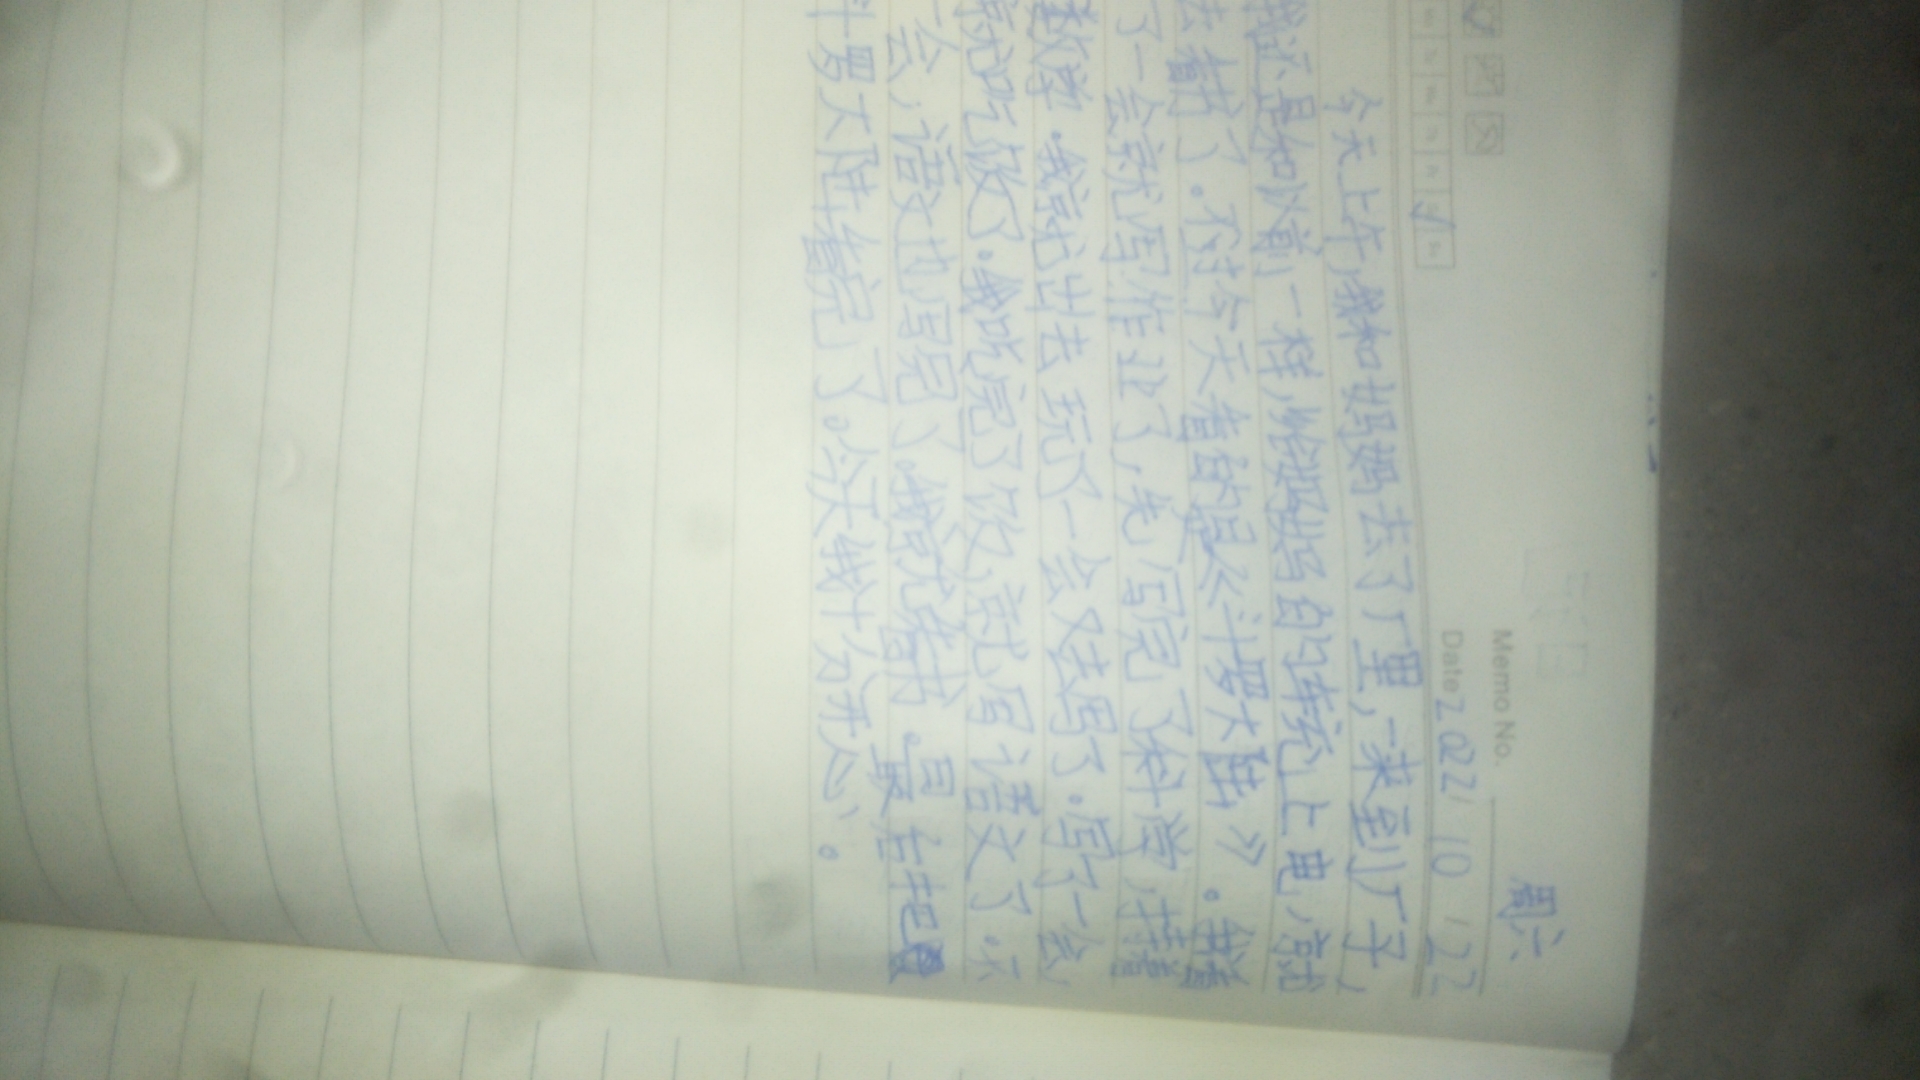 周六
Memo No.
Date 2022 / 10 / 22
今天上午,我和妈妈去了厂里,一来到厂子,
我还是和以前一样,给妈妈的车充上电,就
去看书了。不过今天看的是《斗罗大陆》。我看
了一会就写作业了,先写完了科学,接着
数学.我就出去玩了一会又去写了.写了一会
就吃饭了.我吃完了饭,就写语文了.不
一会,语文也写完了.我就看书.最后把
斗罗大陆看完了。今天我十分开心。